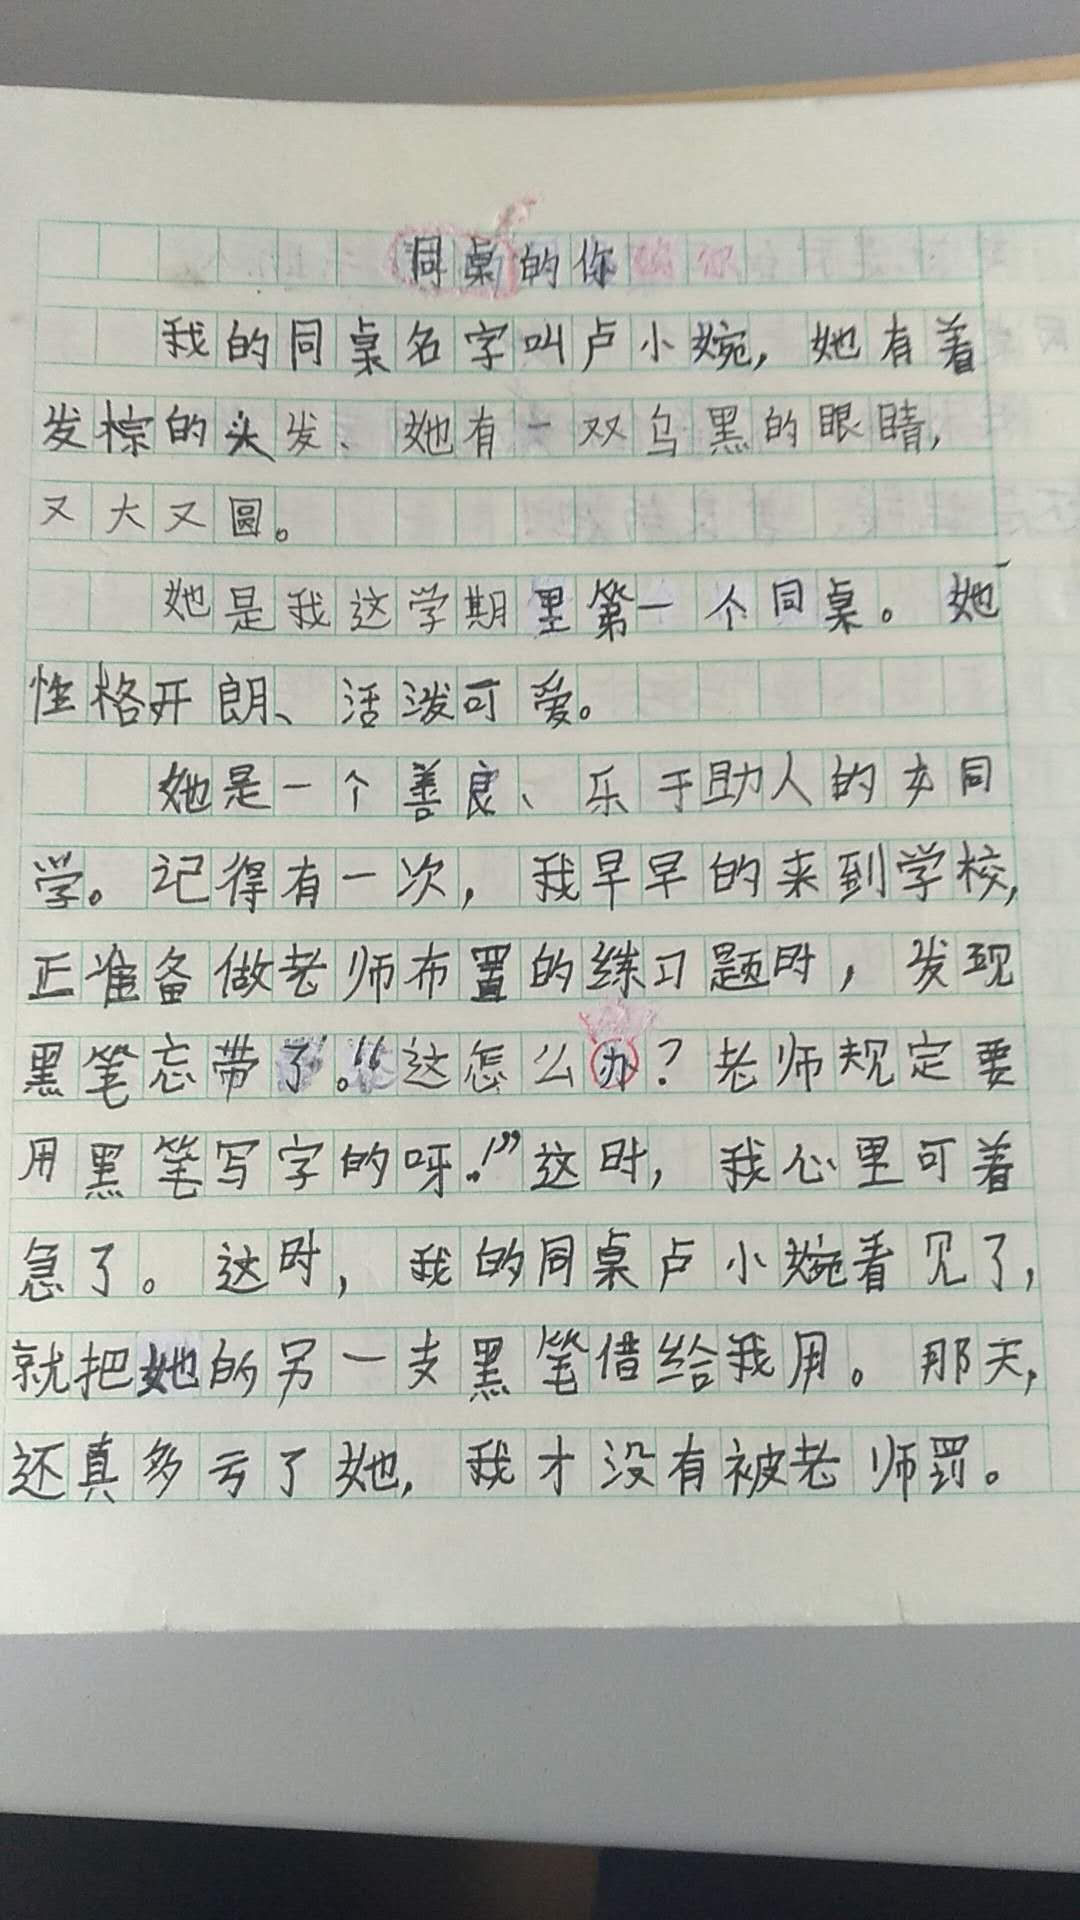 同桌的你
我的同桌名字叫卢小婉，她有着
发棕的头发、她有一双乌黑的眼睛，
又大又圆。
她是我这学期里第一个同桌。她
性格开朗、活泼可爱。
她是一个善良、乐于助人的女同
学。记得有一次，我早早的来到学校，
正准备做老师布置的练习题时，发现
黑笔忘带了。“这怎么办？老师规定要
用黑笔写字的呀！”这时，我心里可着
急了。这时，我的同桌卢小婉看见了，
就把她的另一支黑笔借给我用。那天，
还真多亏了她，我才没有被老师罚。